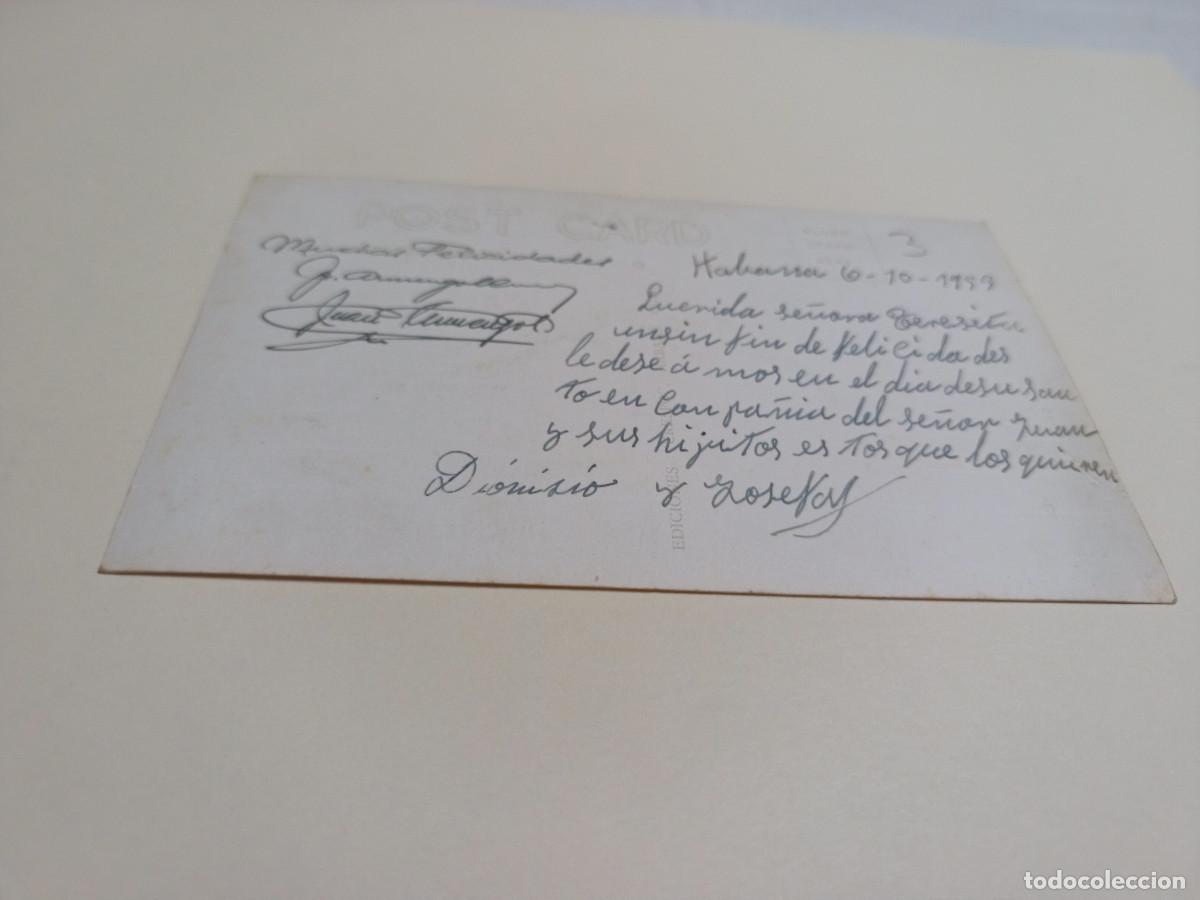 POST CARD
PLACE
STAMP
3
Muchas Felicidades
Juan
Habana 6-10-1959
Querida señora Teresita
unsin fin de felicidades
le dese á mos en el dia desu san
to en compañia del señor Juan
y sus hijitos es tos que los quieren
Dionisio y Josefa
EDICIONES
todocoleccion